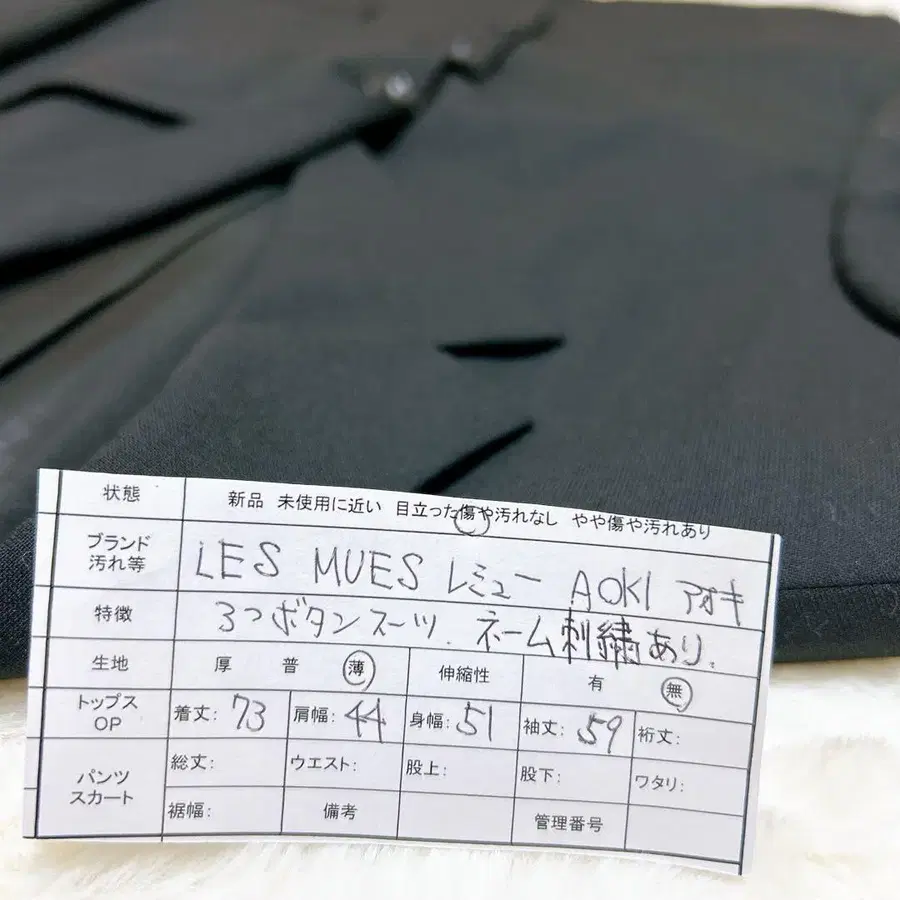 状態 新品 未使用に近い 目立った傷や汚れなし やや傷や汚れあり
ブランド 汚れ等 LES MUES レミュー AOKI アオキ
特徴 3つボタンスーツ. ネーム刺繍あり.
生地 厚 普 薄 伸縮性 有 無
トップス OP 着丈: 73 肩幅: 44 身幅: 51 袖丈: 59 裄丈:
パンツ スカート 総丈: ウエスト: 股上: 股下: ワタリ:
裾幅: 備考 管理番号